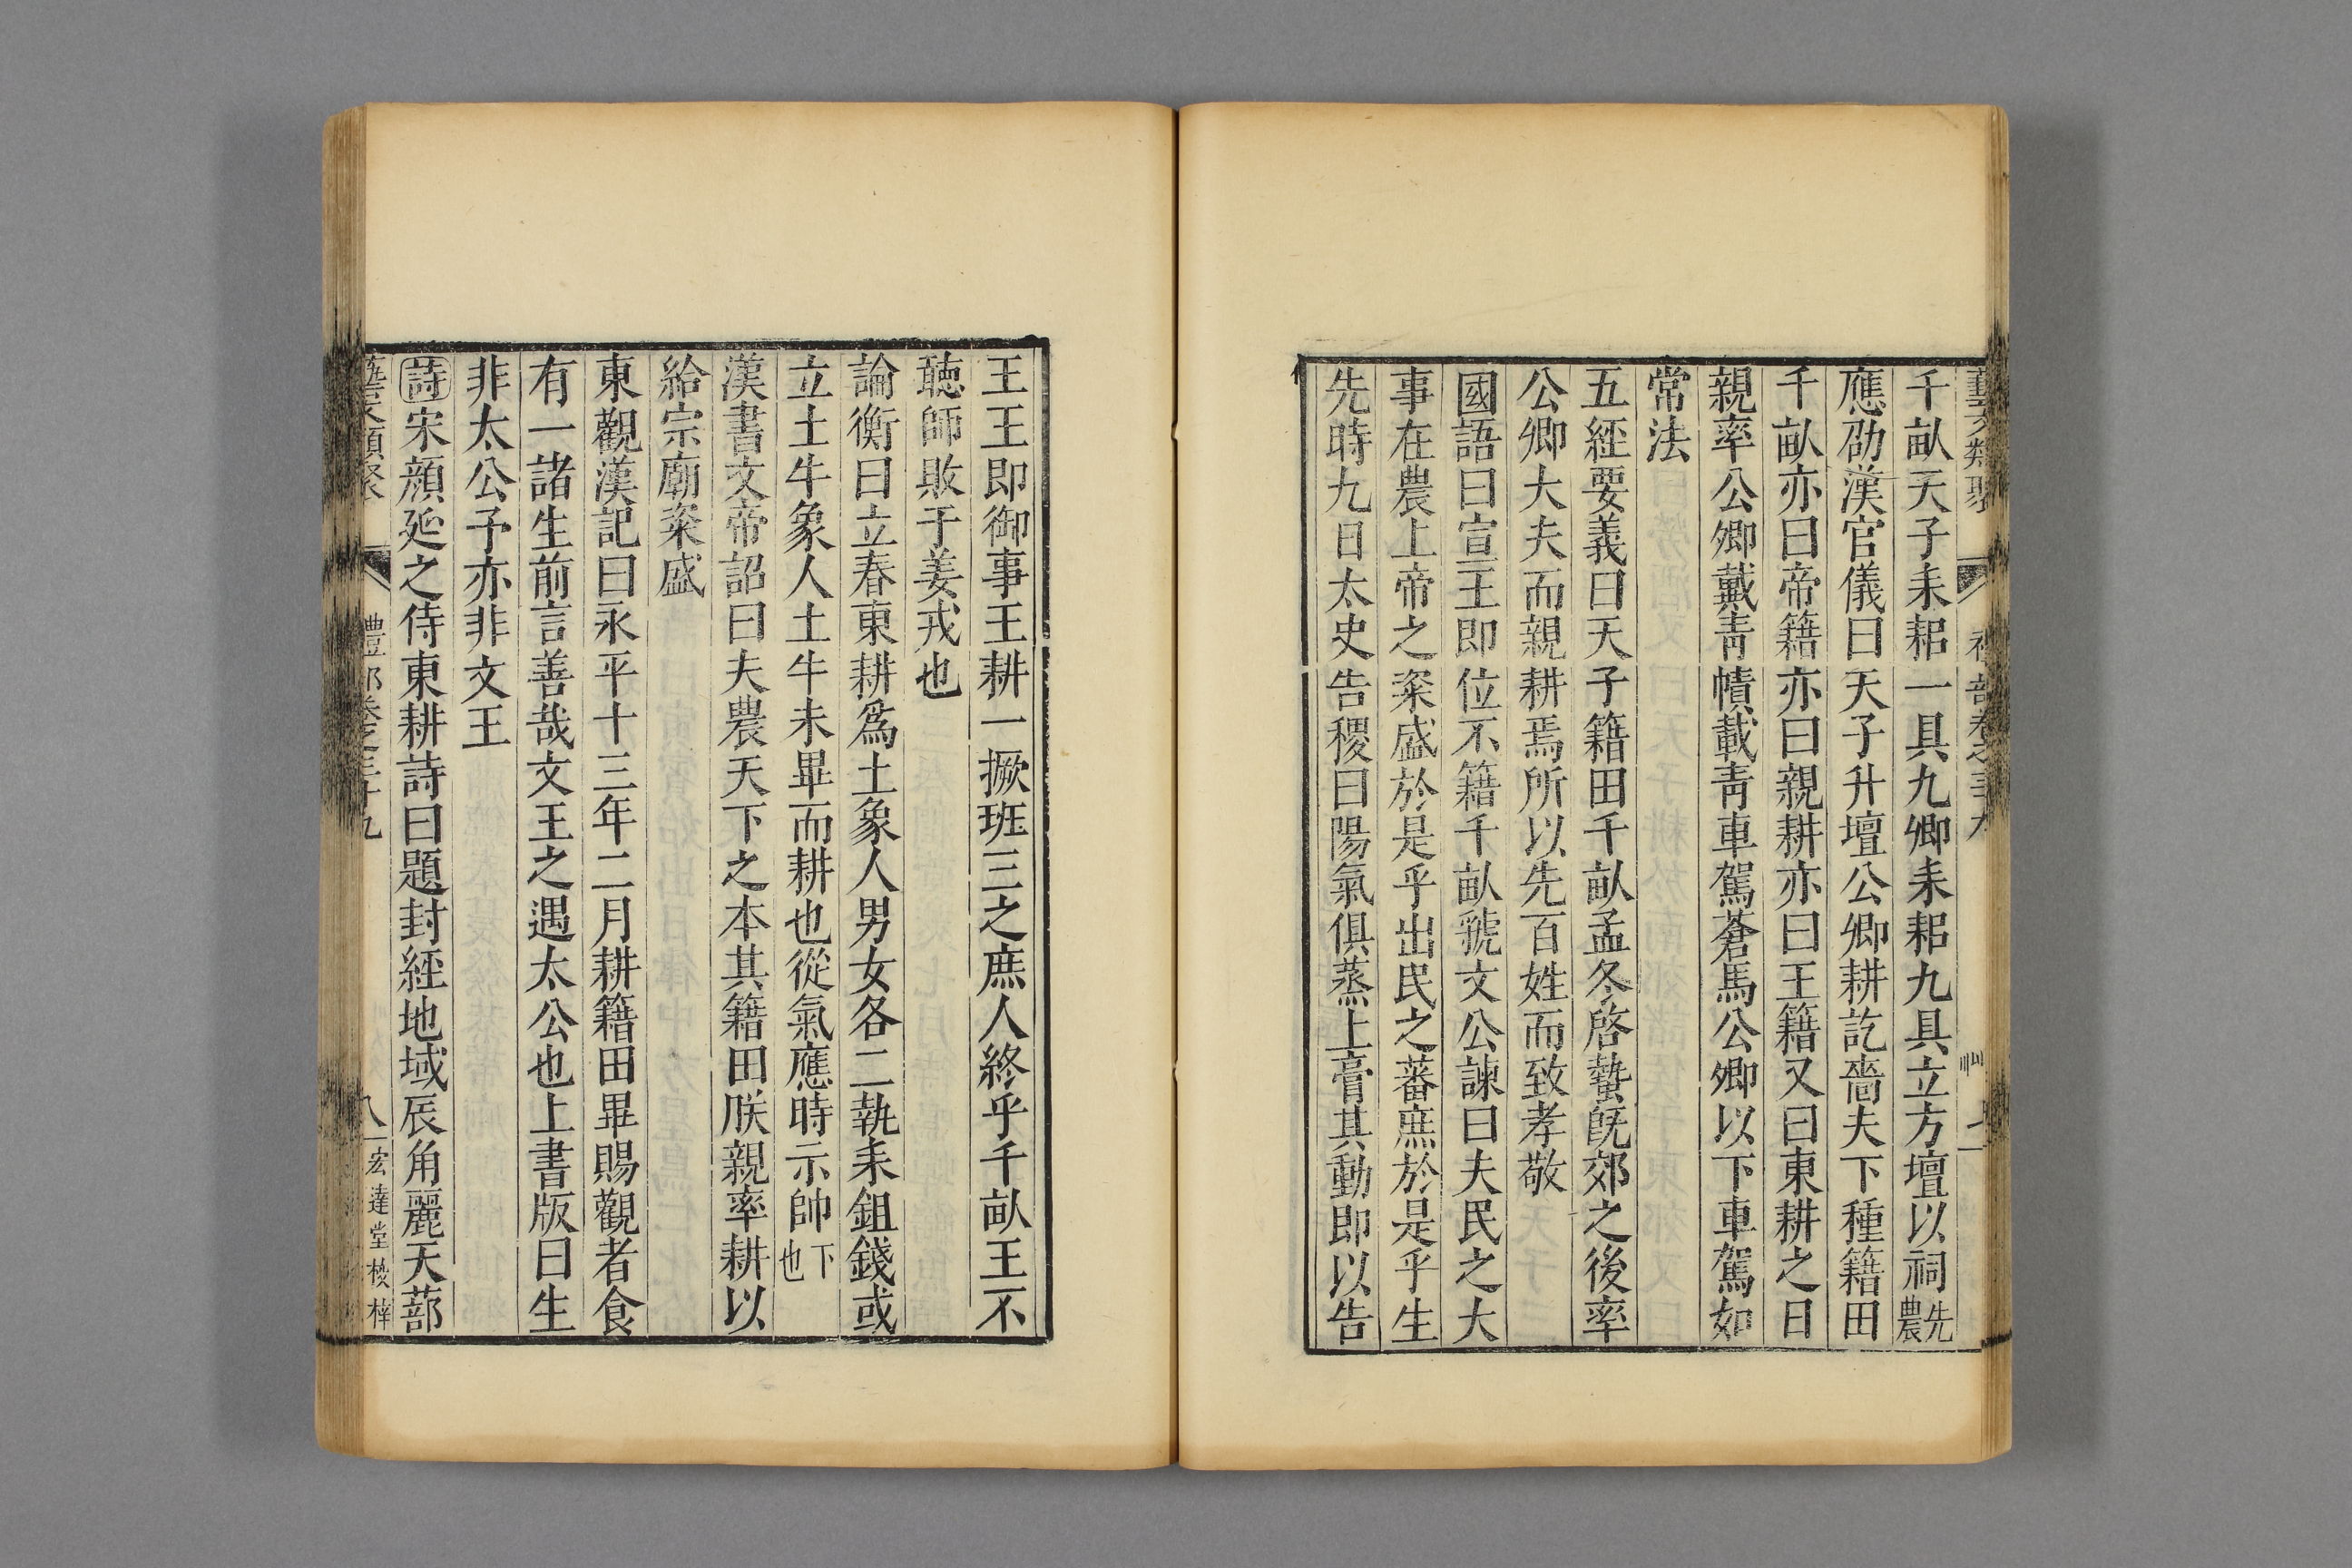 千畝天子耒耜一具九卿耒耜九具立方壇以祠先農
應劭漢官儀曰天子升壇公卿耕訖嗇夫下種籍田
千畝亦曰帝籍亦曰親耕亦曰王籍又曰東耕之日
親率公卿戴青幘載青車駕蒼馬公卿以下車駕如
常法
五經要義曰天子籍田千畝孟冬啓蟄旣郊之後率
公卿大夫而親耕焉所以先百姓而致孝敬
國語曰宣王即位不籍千畝虢文公諫曰夫民之大
事在農上帝之粢盛於是乎出民之蕃庶於是乎生
先時九日太史告稷曰陽氣俱蒸上膏其動即以告
王王即御事王耕一撅班三之庶人終乎千畝王不
聽師敗于姜戎也
論衡曰立春東耕爲土象人男女各二執耒鉏錢或
立土牛象人土牛未畢而耕也從氣應時示帥下也
漢書文帝詔曰夫農天下之本其籍田朕親率耕以
給宗廟粢盛
東觀漢記曰永平十三年二月耕籍田畢賜觀者食
有一諸生前言善哉文王之遇太公也上書版曰生
非太公予亦非文王
詩宋顏延之侍東耕詩曰題封經地域辰角麗天蔀
藝文類聚 禮部卷之三十九 八 宏達堂校梓